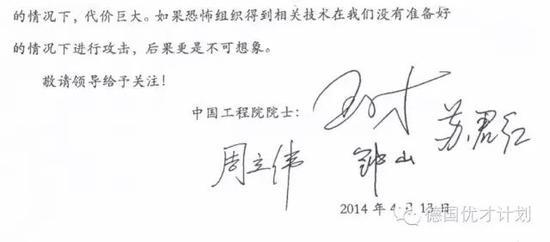 的情况下，代价巨大。如果恐怖组织得到相关技术在我们没有准备好
的情况下进行攻击，后果更是不可想象。
敬请领导给予关注！
中国工程院院士：
苏君红
周立伟
2014 年 4 月 13 日
德国优才计划